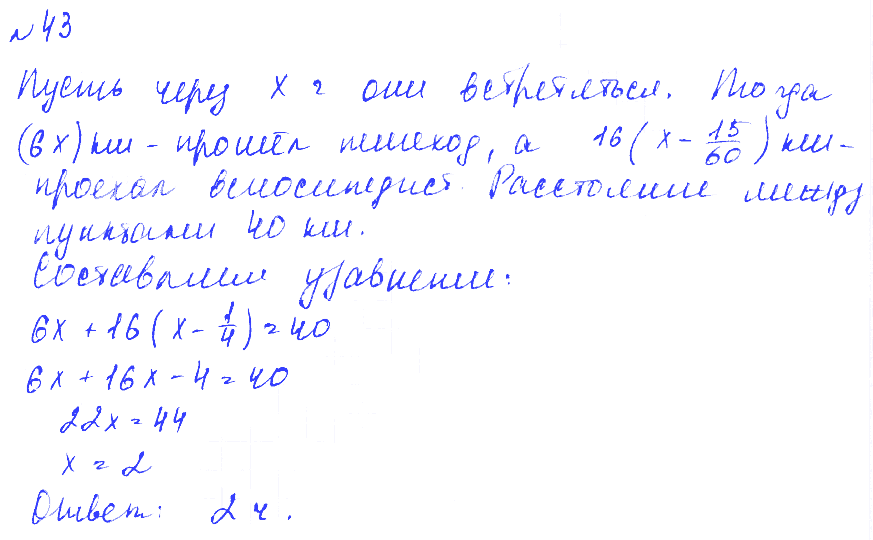 №43
Пусть через x ч они встретяться. Тогда
(6x) км - прошёл пешеход, а 16(x - 15/60) км -
проехал велосипедист. Расстояние между
пунктами 40 км.
Составим уравнение:
6x + 16(x - 1/4) = 40
6x + 16x - 4 = 40
22x = 44
x = 2
Ответ: 2 ч.